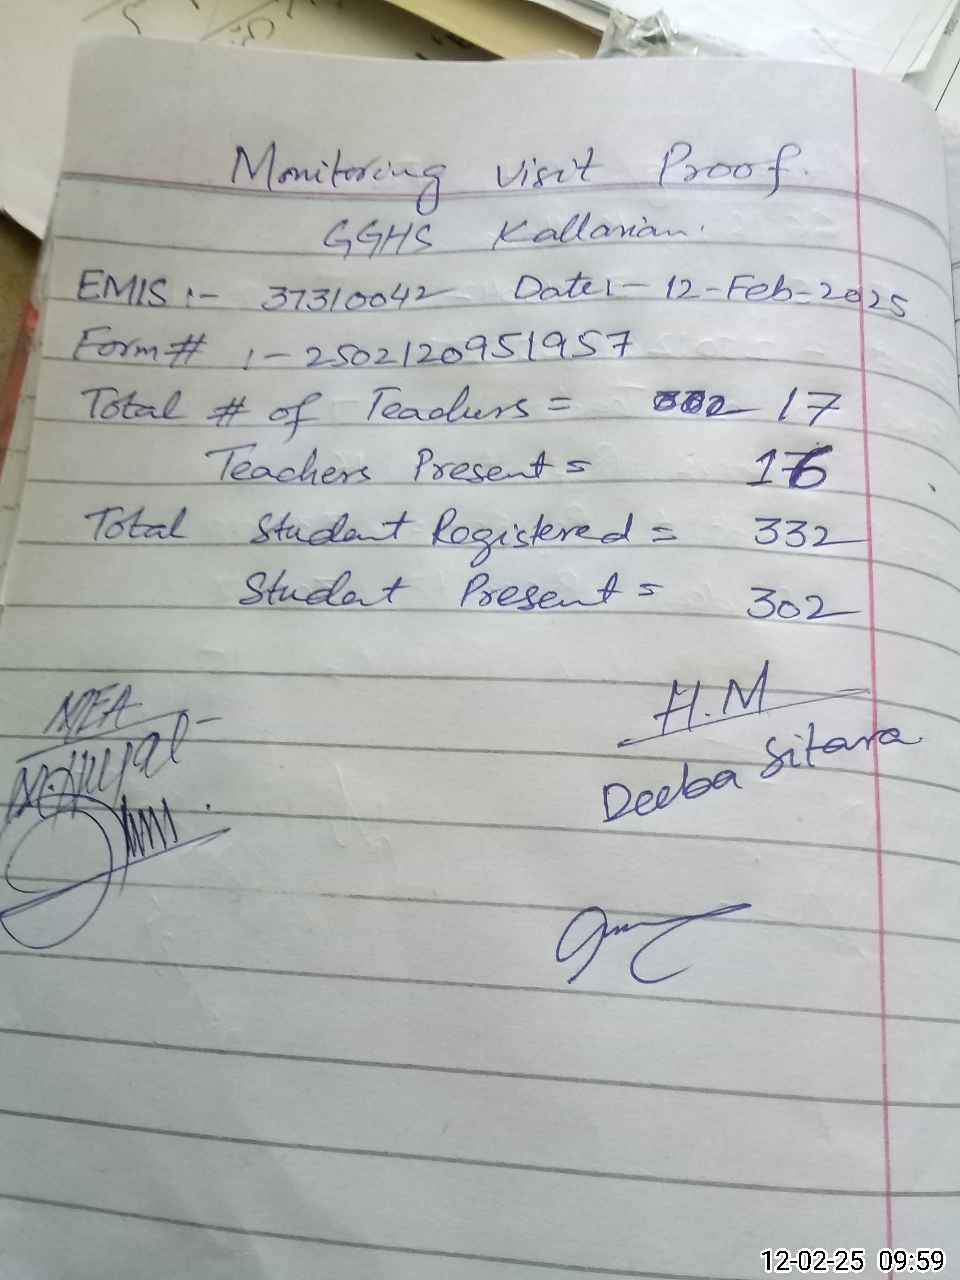 Monitoring visit Proof.
GGHS Kallarian.
EMIS :- 37310042 Date:- 12-Feb-2025
Form # :- 2502120951957
Total # of Teachers = 17
Teachers Present = 16
Total Student Registered = 332
Student Present = 302
MEA
H.M
Deeba Sitara
12-02-25 09:59